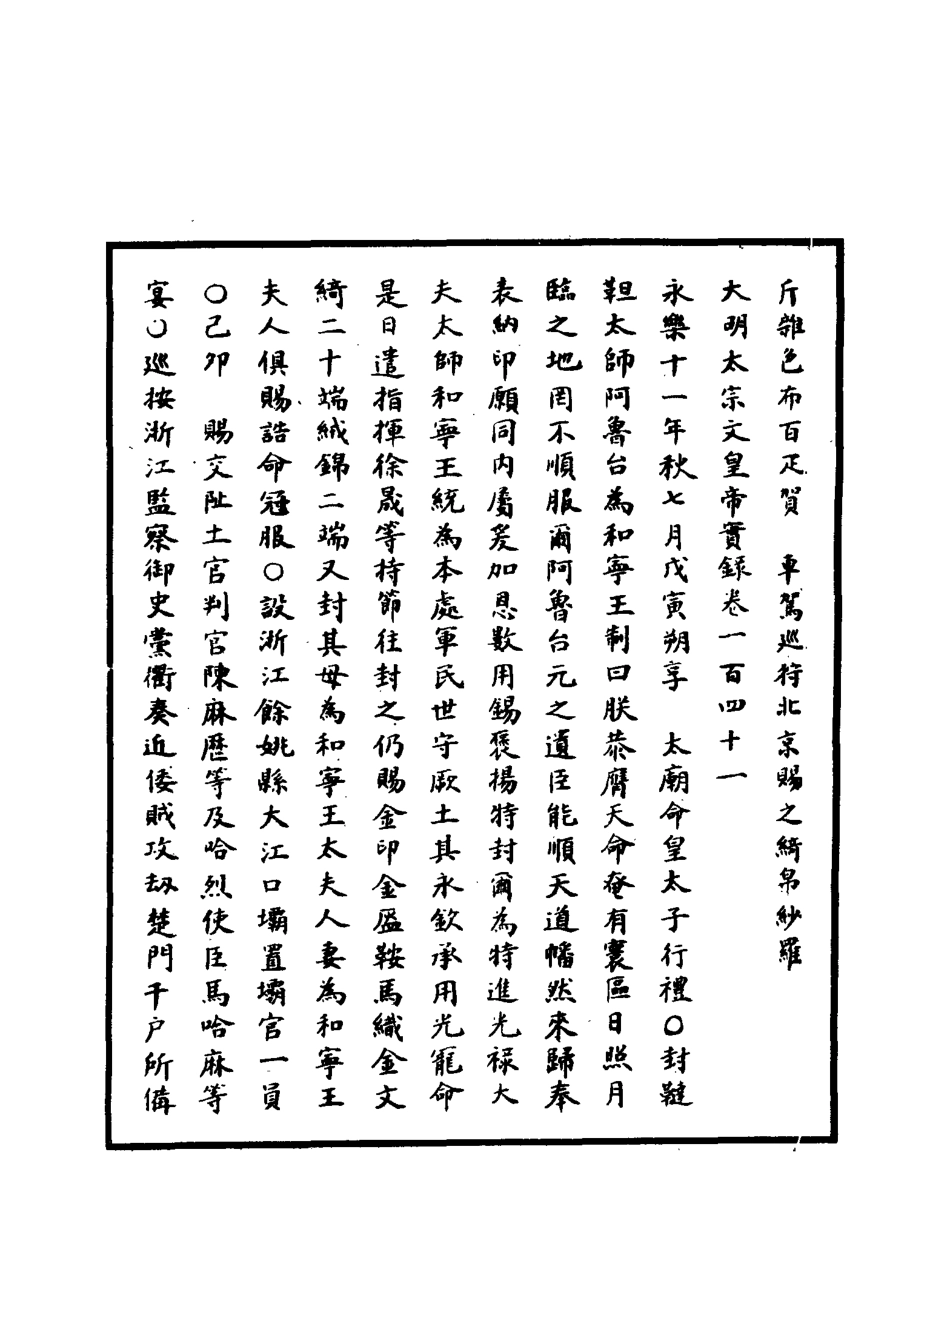 斤雜色布百疋賀　車駕巡狩北京賜之綺帛紗羅
大明太宗文皇帝實錄卷一百四十一
永樂十一年秋七月戊寅朔享　太廟命皇太子行禮○封韃
靼太師阿魯台為和寧王制曰朕恭膺天命奄有寰區日照月
臨之地罔不順服爾阿魯台元之遺臣能順天道幡然來歸奉
表納印願同內屬爰加恩數用錫褒揚特封爾為特進光祿大
夫太師和寧王統為本處軍民世守厥土其永欽承用光寵命
是日遣指揮徐晟等持節往封之仍賜金印金盔鞍馬織金文
綺二十端絨錦二端又封其母為和寧王太夫人妻為和寧王
夫人俱賜誥命冠服○設浙江餘姚縣大江口壩置壩官一員
○己卯　賜交阯土官判官陳麻歷等及哈烈使臣馬哈麻等
宴○巡按浙江監察御史黨衢奏近倭賊攻刼楚門千户所備